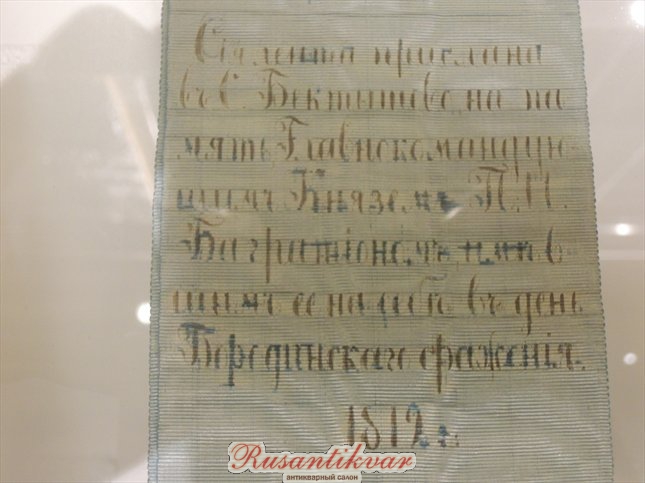 Сія лента прислана
въ С. Бектышево, на па
мять, Главнокомандую
щимъ Княземъ П. И.
Багратіономъ имев
шимъ ее на себѣ въ день
Бородинскаго сраженія.
1812 г.
Rusantikvar
антикварный салон